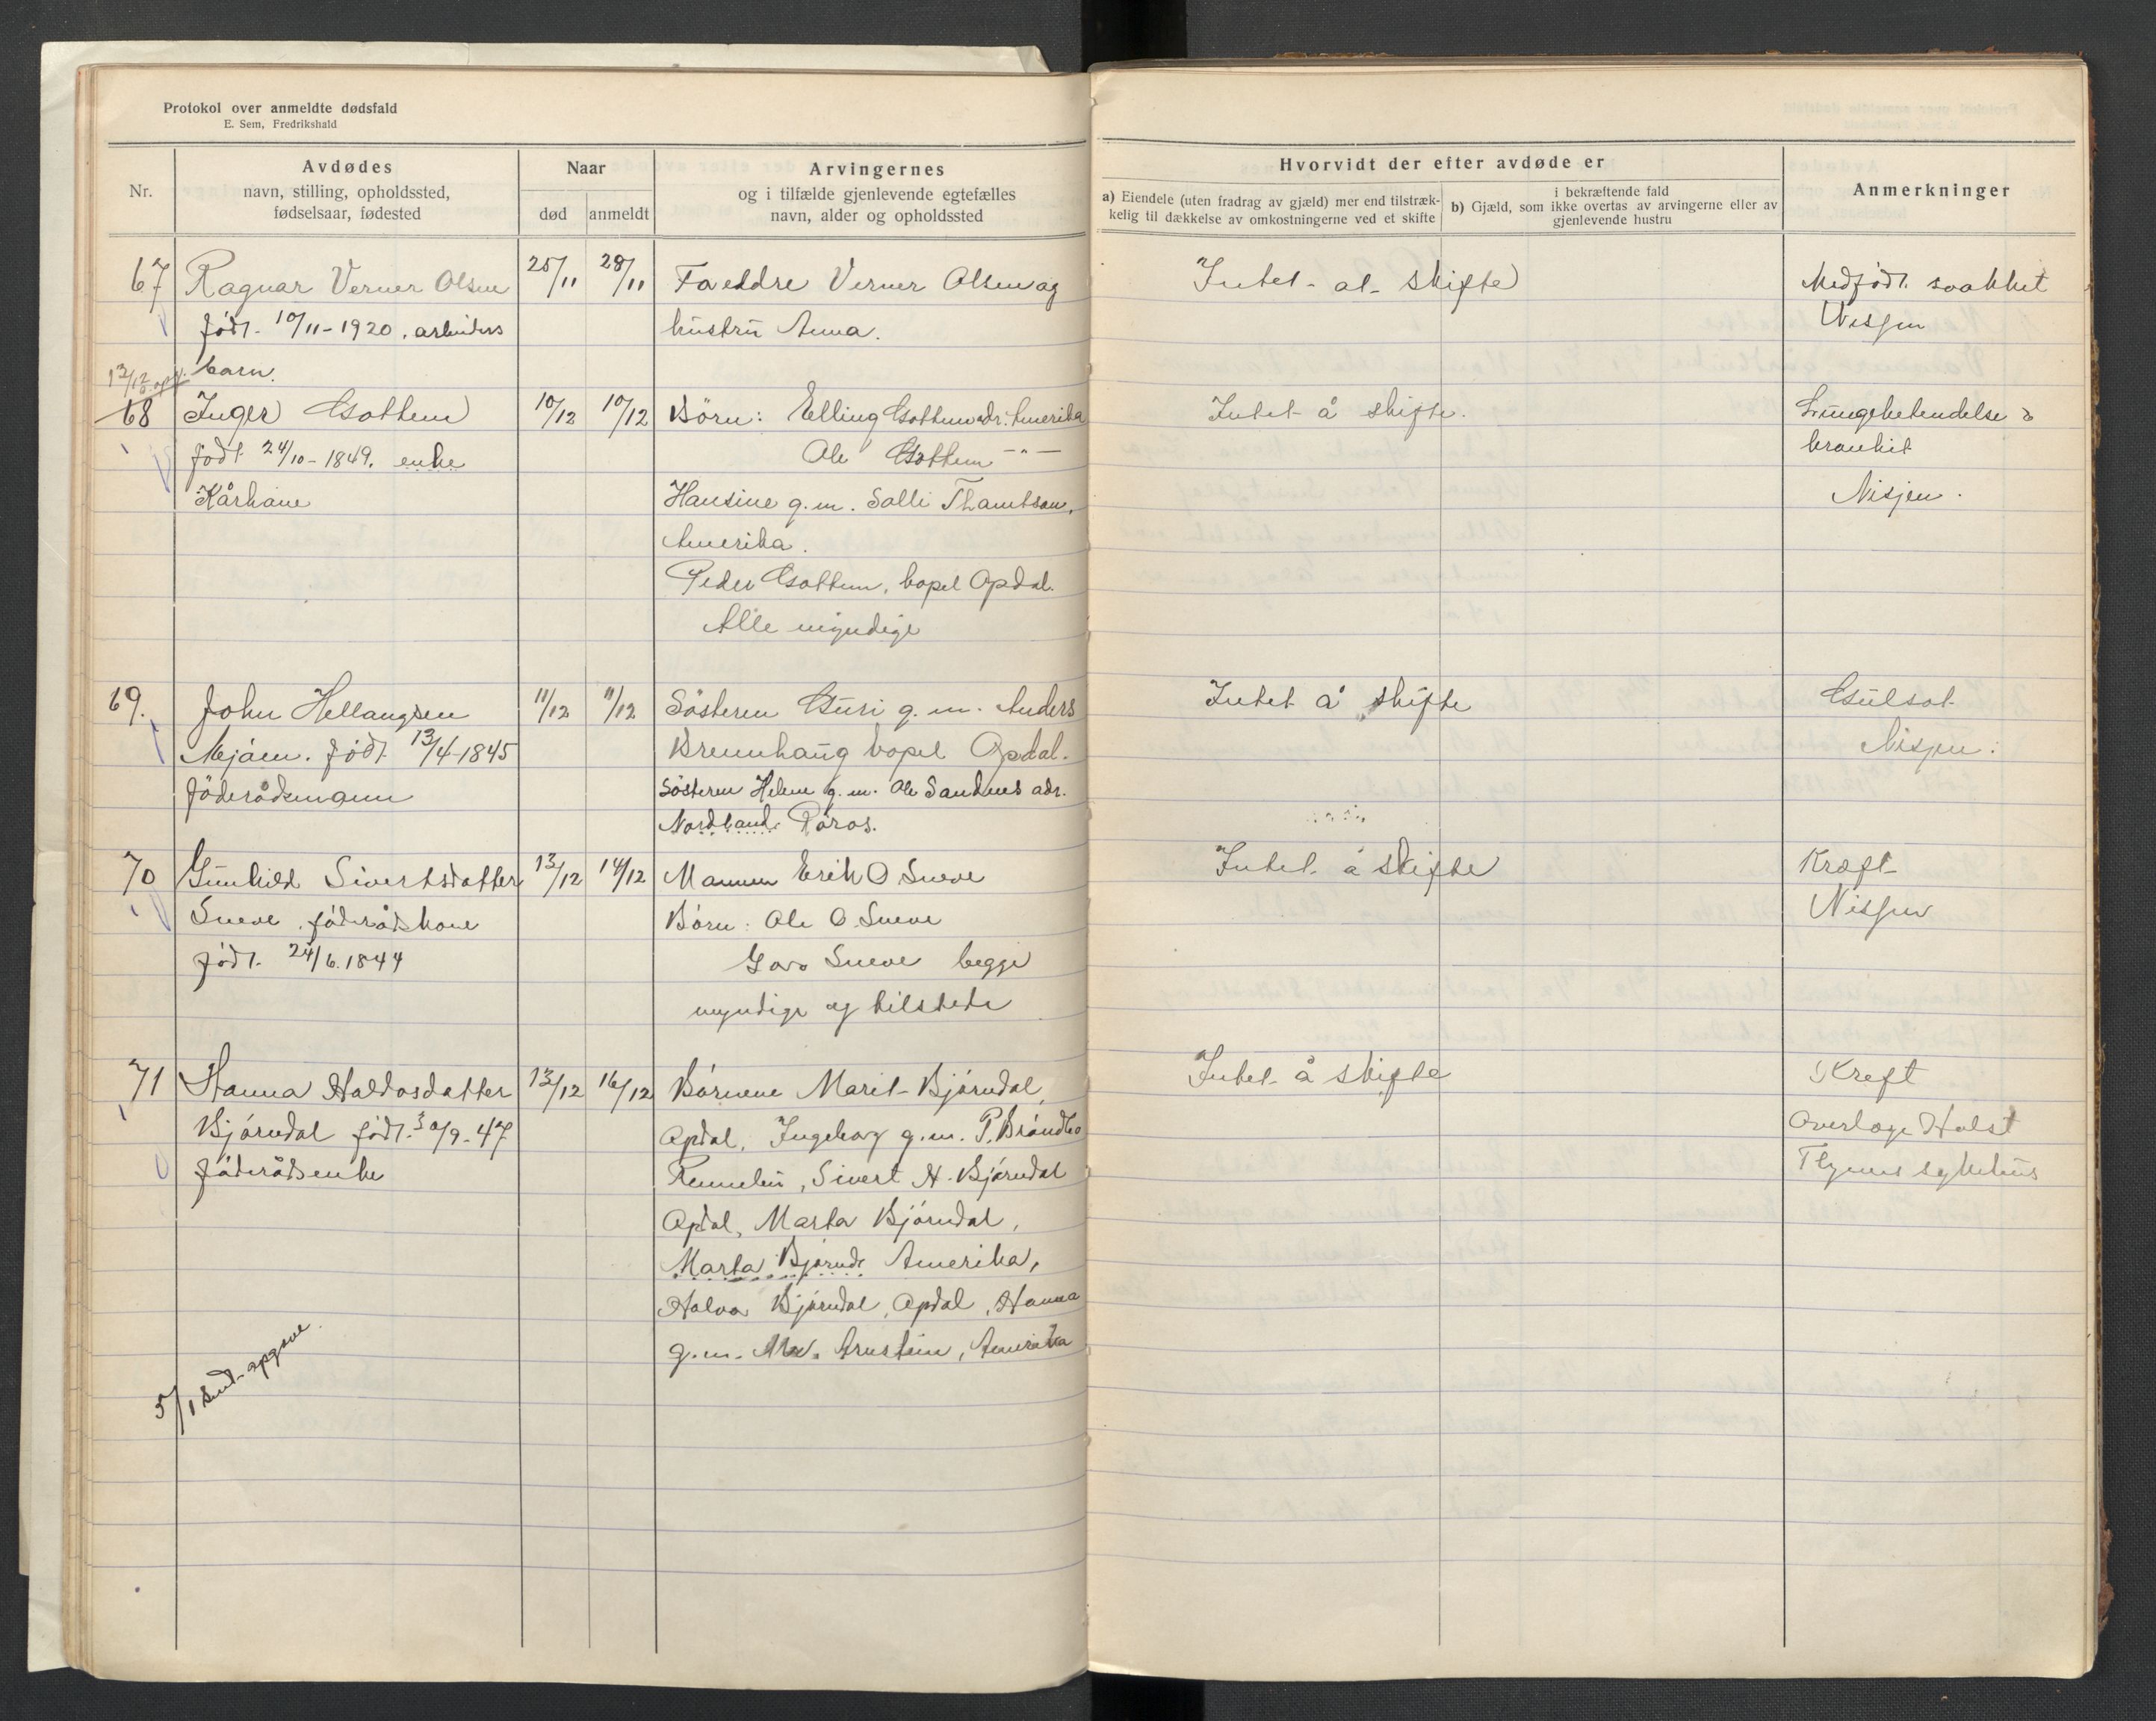 Protokol over anmeldte dødsfald
E. Sem, Fredrikshald
Nr.
Avdødes
navn, stilling, opholdssted,
fødselsaar, fødested
Naar
død
anmeldt
Arvingernes
og i tilfælde gjenlevende egtefælles
navn, alder og opholdssted
Hvorvidt der efter avdøde er
a) Eiendele (uten fradrag av gjæld) mer end tilstræk-
kelig til dækkelse av omkostningerne ved et skifte
i bekræftende fald
b) Gjæld, som ikke overtas av arvingerne eller av
gjenlevende hustru
Anmerkninger
67 Ragnar Verner Olsen 25/11 28/11 Foreldre Verner Olsen og Intet at skifte Medfødt svakhet
født 10/11-1920. arbeiders hustru Anna. Nisjen
barn.
12/12 opg.
68 Inger Gottem 10/12 10/12 Börn: Elling Gottem adr. Amerika Intet å skifte. Lungebetendelse &
født 24/10-1849. enke Ole Gottem -"- bronkit
Kårkone Hansine g.m. Salli Thamtson, Nisjen.
Amerika.
Peder Gottem, bopel Opdal.
Alle myndige
69. John Hellangsen 11/12 11/12 Sösteren Guri g.m. Anders Intet å skifte Gulsot
Mjöen. födt 13/4-1845 Brennhaug bopel Opdal. Nisjen.
föderådsmann Sösteren Helene g.m. Ole Sandnes adr.
Nordland Röros.
70 Gunhild Sivertsdatter 13/12 14/12 Mannen Erik O Sneve Intet å skifte Kræft
Sneve, föderådskone Börn: Ole O. Sneve Nisjen
födt. 24/6.1844 Sneve begge
myndige og tilstede
71 Hanna Haldosdatter 13/12 16/12 Börnene Marit Björndal, Intet å skifte Kreft
Björndal födt. 30/9-47 Opdal, Ingeborg g.m. P. Bröndbo Overlæge Holst
föderådsenke Rennebu, Sivert H. Björndal Tlyrens sykehus
Opdal, Marta Björndal,
Marta Björnd. Amerika,
Halvor Björndal, Opdal, Hanna
g.m. Arnstein, Amerika
5/1 sendt opgave.